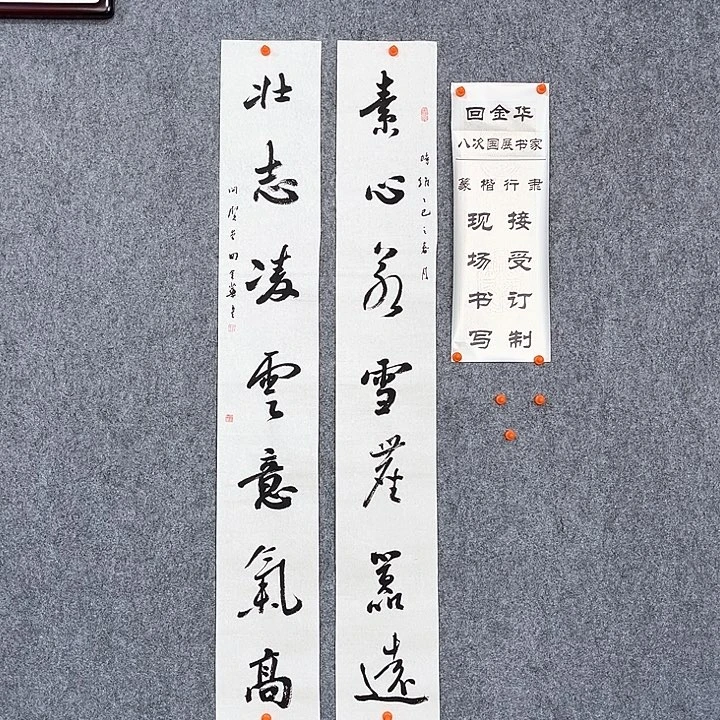 素心若雪塵囂遠
時維乙巳之春月
壮志凌雲意氣高
回金华
八次国展书家
篆楷行隶
接受订制
现场书写